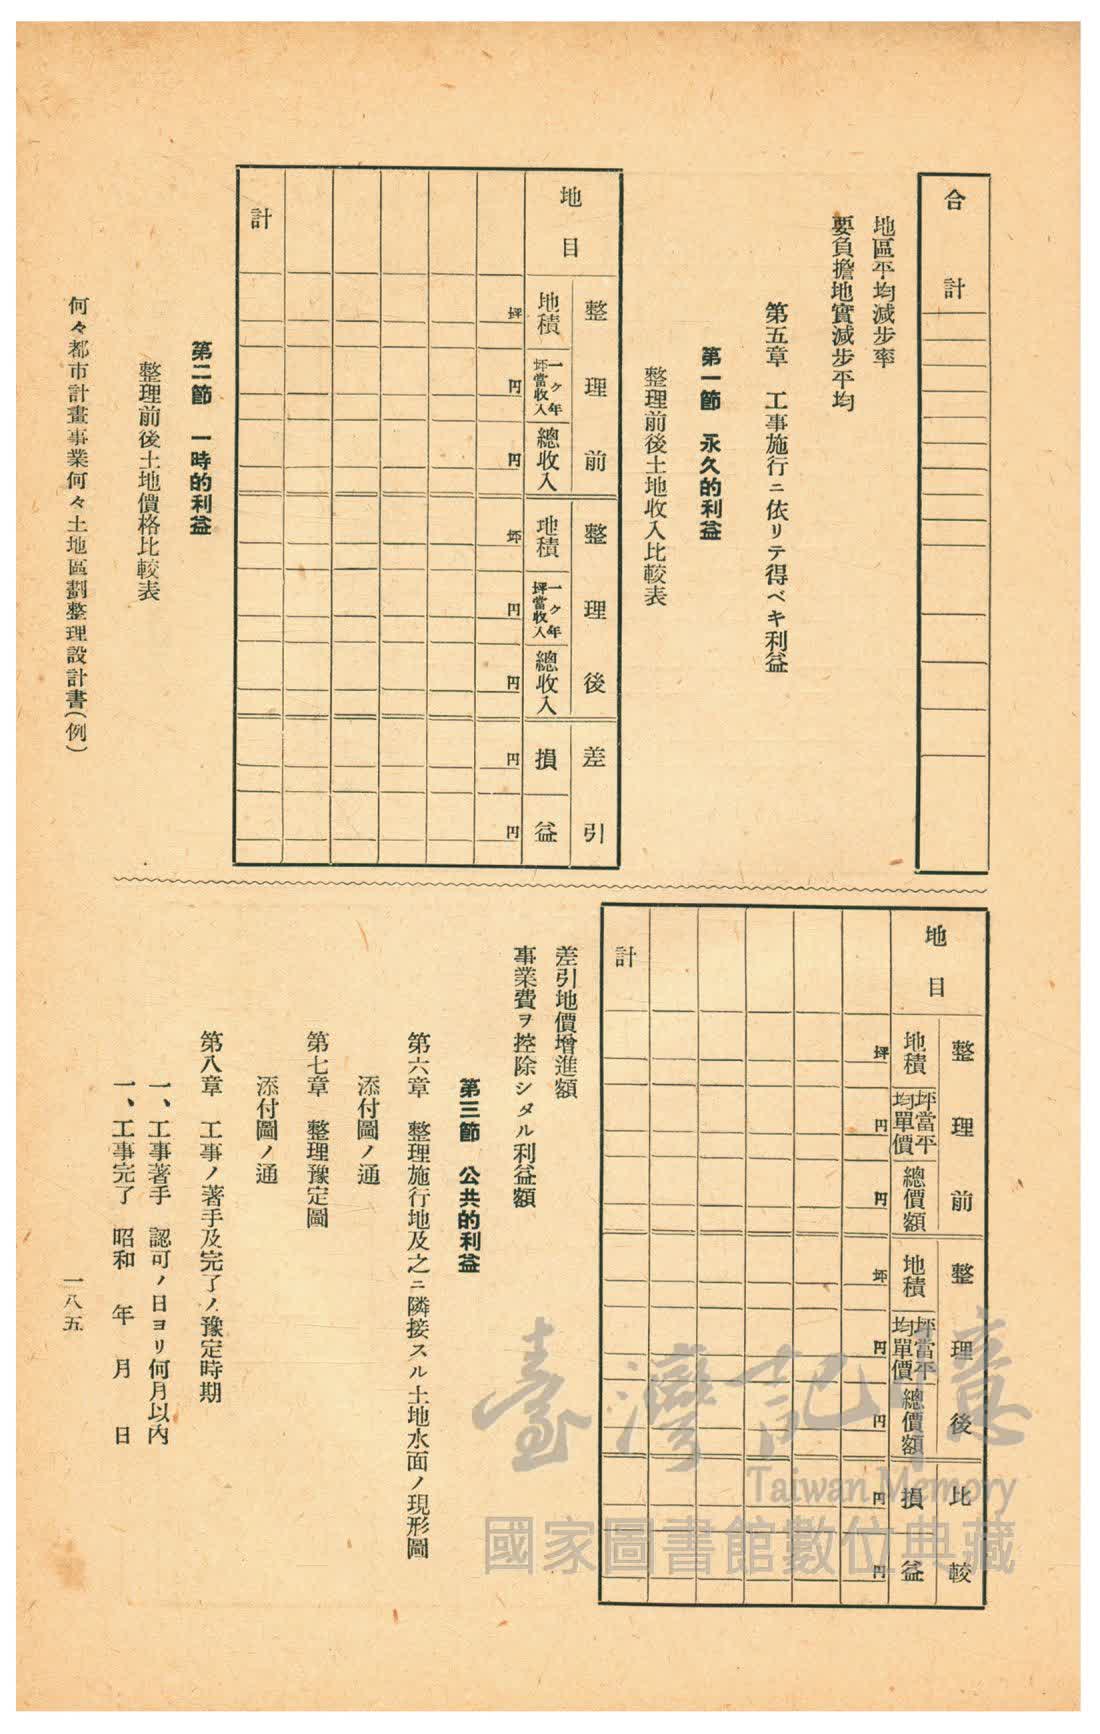 合計
地區平均減步率
要負擔地實減步平均
第五章　工事施行ニ依リテ得ベキ利益
第一節　永久的利益
整理前後土地收入比較表
地目
整理前
整理後
差引
地積
一ヶ年坪當收入
總收入
地積
一ヶ年坪當收入
總收入
損
益
坪
円
円
坪
円
円
円
円
計
第二節　一時的利益
整理前後土地價格比較表
何々都市計畫事業何々土地區劃整理設計書(例)
地目
整理前
整理後
比較
地積
坪當平均單價
總價額
地積
坪當平均單價
總價額
損
益
坪
円
円
坪
円
円
円
円
計
差引地價增進額
事業費ヲ控除シタル利益額
第三節　公共的利益
第六章　整理施行地及之ニ隣接スル土地水面ノ現形圖
添付圖ノ通
第七章　整理豫定圖
添付圖ノ通
第八章　工事ノ著手及完了ノ豫定時期
一、工事著手　認可ノ日ヨリ何月以內
一、工事完了　昭和　年　月　日
一八五
臺灣記憶
Taiwan Memory
國家圖書館數位典藏